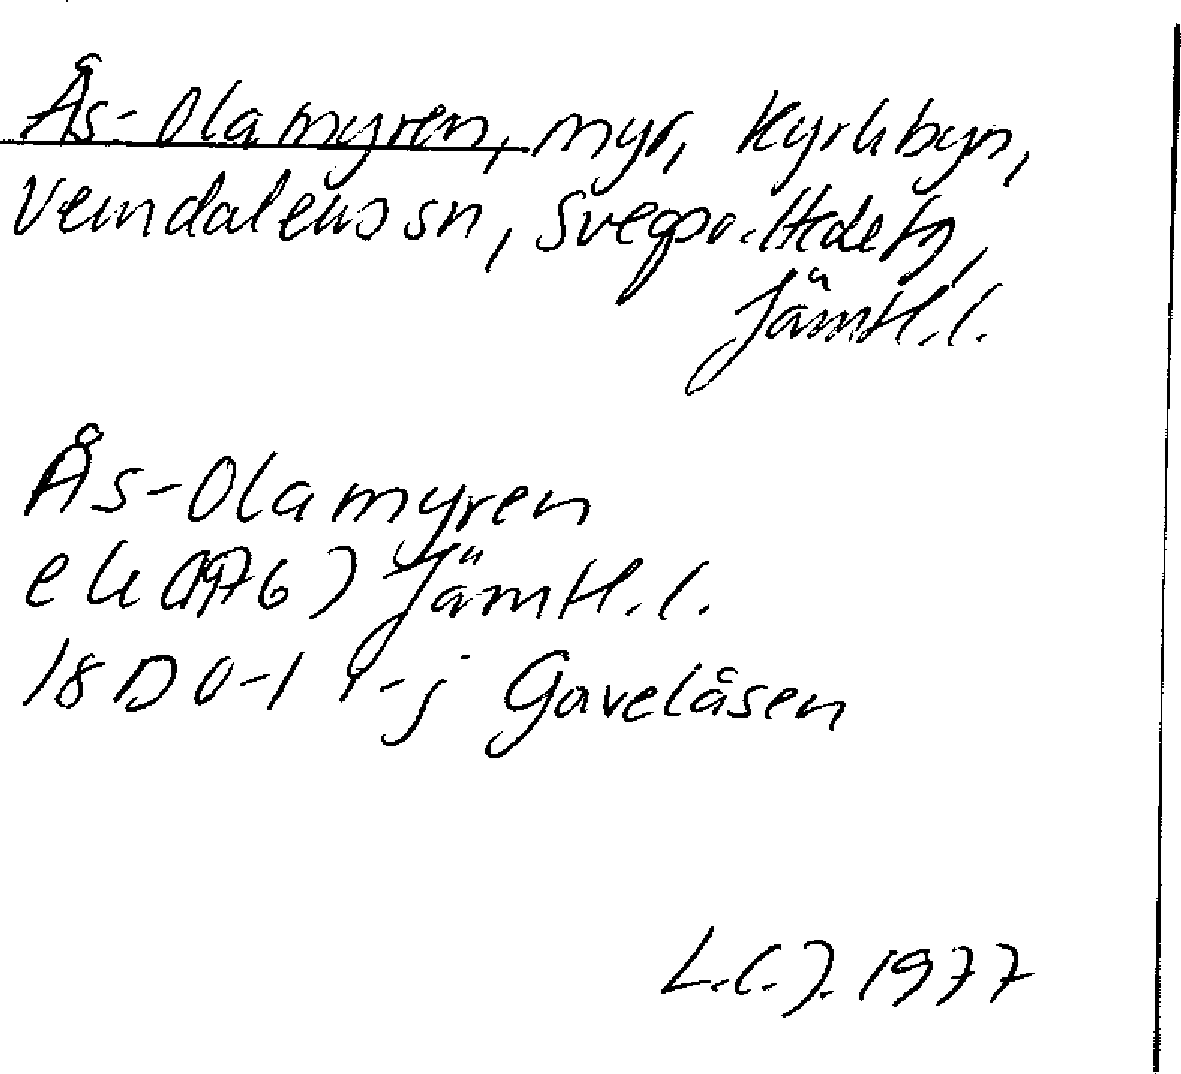 Ås-Olamyren, myr, Kyrkbyn,
Vemdalens sn, Svegs o. Hede tg,
Jämtl. l.
Ås-Olamyren
ek (1976) Jämtl. l.
18D 0-1 i-j Gavelåsen
L.C.J. 1977